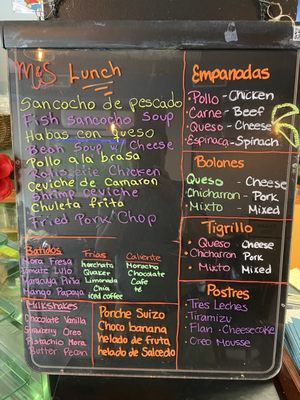 M&S Lunch
Sancocho de pescado
Fish Sancocho Soup
Habas con Queso
Bean Soup w/ Cheese
Pollo a la brasa
Rotisserie Chicken
Ceviche de Camaron
Shrimp Ceviche
Chuleta frita
Fried Pork Chop
Empanadas
• Pollo - Chicken
• Carne - Beef
• Queso - Cheese
• Espinaca - Spinach
Bolones
Queso - Cheese
• Chicharron - Pork
• Mixto - Mixed
Tigrillo
• Queso Cheese
• Chicharron Pork
• Mixto Mixed
Postres
• Tres Leches
• Tiramizu
• Flan • Cheesecake
• Oreo Mousse
Batidos
Mora Fresa
Tomate Lulo
Maracuya Piña
Mango Papaya
Frias
horchata
Quaker
Limonada
Chia
iced coffee
Caliente
Morocho
Chocolate
Cafe
té
Milkshakes
Chocolate Vanilla
Strawberry Oreo
Pistachio Mora
Butter Pecan
Ponche Suizo
Choco banana
helado de fruta
helado de Salcedo